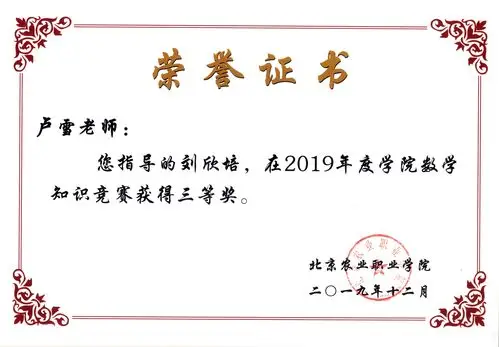 荣誉证书
卢雪老师：
您指导的刘欣培，在2019年度学院数学
知识竞赛获得三等奖。
北京农业职业学院
二〇一九年十二月